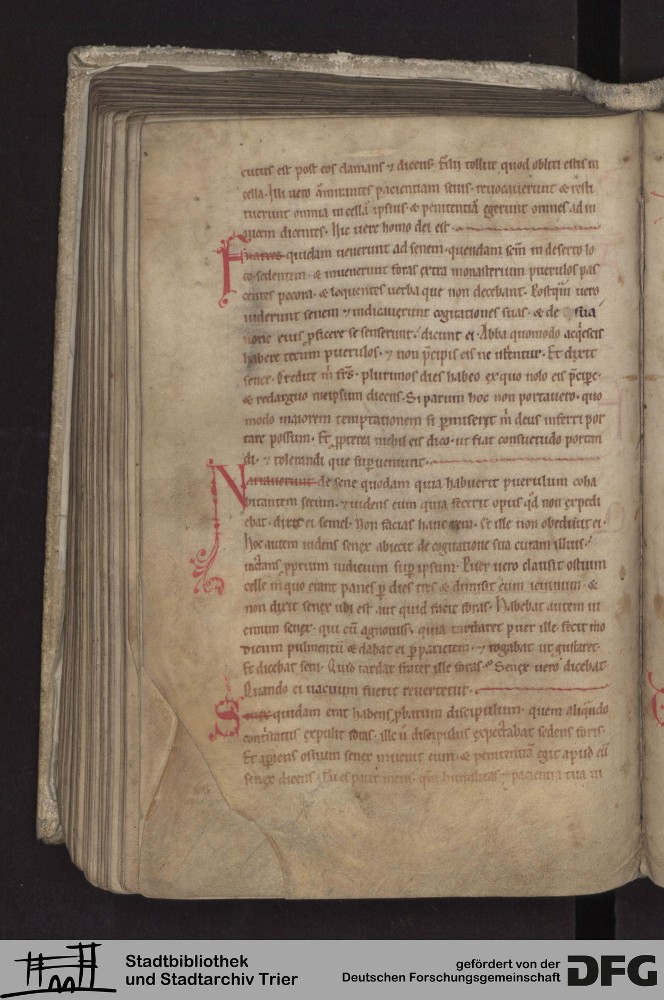 cutus est post eos clamans ⁊ dicens· filii tollite quod obliti estis in
cella· Illi vero ammirantes pacientiam senis· revocaverunt & resti
tuerunt omnia in cella ipsius· & penitentiā egerunt omnes ad in
vicem dicentes· Hic vere homo dei est·
Fratres quidam venerunt ad senem· quendam scm̄ in deserto lo
co· sedentem· & invenerunt foras extra monasterium puerulos pas
centes pecora· & loquentes verba que non decebant· Postq̄m vero
viderunt senem ⁊ indicaverunt cogitationes suas· & de sua
eius ꝓficere se senserunt· dicunt ei· Abba quomodo acq̇escis
habere tecum puerulos· ⁊ non p̄cipis eis ne Et dixit
senex· Credite m̄ frs̄· plurimos dies habeo ex quo volo eis p̄cipe·
& redarguo meipsum dicens· Si parum hoc non portavero· quo
modo maiorem temptationem si ꝑmiserit m̄ deus inferri por
tare possum· Et ꝓpterea nichil eis dico· ut fiat consuetudo portan
di· ⁊ tolerandi que suꝑveniunt·
Narraverunt de sene quodam quia habuerit puerulum coha
bitantem secum· ⁊ videns eum quia fecerit opus qd̄ non expedi
ebat· dixit ei semel· Non facias hanc rem· Et ille non obedivit ei·
Hoc autem videns senex abiecit de cogitatione sua curam illius·
ꝓprium iudicium suꝑ ipsum· Puer vero clausit ostium
celle in quo erant panes ꝑ dies tres & dimisit eum ieiunum· &
non dixit senex ubi est aut quid facit foras· Habebat autem vi
cinum senex· qui cū agnovisset quia tardaret puer ille· fecit mo
dicum pulmentū & dabat ei ꝑ parietem· ⁊ rogabat ut gustaret·
Et dicebat seni· Quid tardat frater ille foras· Senex vero dicebat·
Quando ei vacuum fuerit revertetur·
Senex quidam erat habens ꝓbatum discipulum· quem aliq̇ndo
contristatus expulit foras· ille ū discipulus expectabat sedens foris·
Et aꝑiens ostium senex invenit eum· & penitentiā egit apud eū
senex dicens· Tu es pater meus· qm̄ humilitas ⁊ pacientia tua vi
Stadtbibliothek
und Stadtarchiv Trier
gefördert von der
Deutschen Forschungsgemeinschaft
DFG